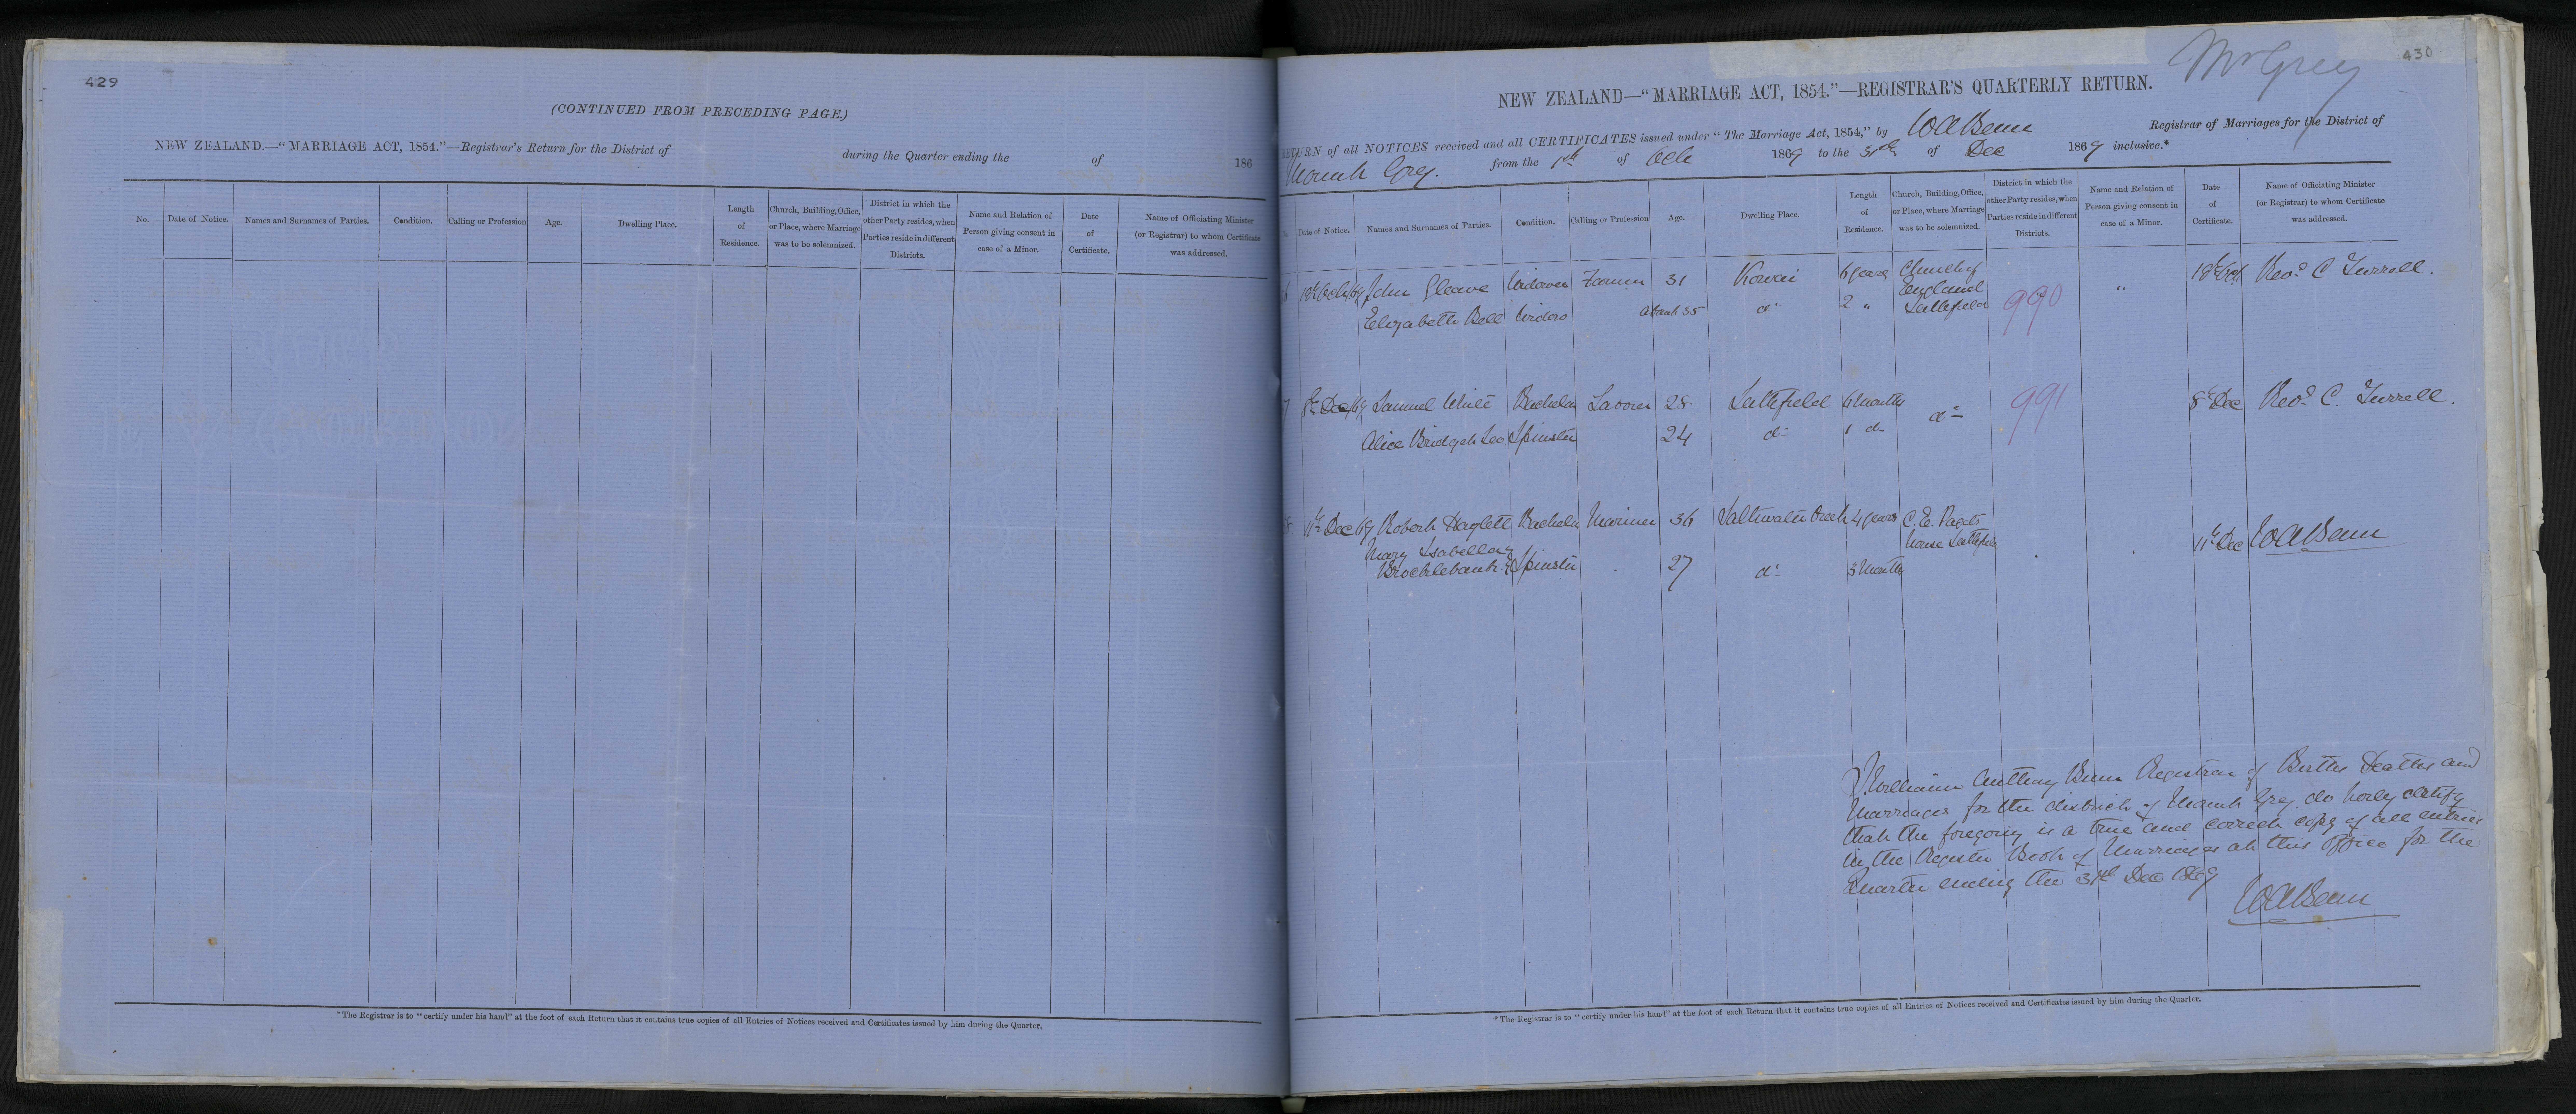 429
(CONTINUED FROM PRECEDING PAGE.)
NEW ZEALAND.—“MARRIAGE ACT, 1854.”—Registrar's Return for the District of during the Quarter ending the of 186
No.
Date of Notice.
Names and Surnames of Parties.
Condition.
Calling or Profession
Age.
Dwelling Place.
Length
of
Residence.
Church, Building, Office,
or Place, where Marriage
was to be solemnized.
District in which the
other Party resides, when
Parties reside in different
Districts.
Name and Relation of
Person giving consent in
case of a Minor.
Date
of
Certificate.
Name of Officiating Minister
(or Registrar) to whom Certificate
was addressed.
*The Registrar is to “certify under his hand” at the foot of each Return that it contains true copies of all Entries of Notices received and Certificates issued by him during the Quarter.
Mt Grey
430
NEW ZEALAND—“MARRIAGE ACT, 1854.”—REGISTRAR'S QUARTERLY RETURN.
RETURN of all NOTICES received and all CERTIFICATES issued under “The Marriage Act, 1854,” by Registrar of Marriages for the District of
Mount Grey. from the 1st of Oct 1869 to the 31st of Dec 1869 inclusive.*
Date of Notice.
Names and Surnames of Parties.
Condition.
Calling or Profession
Age.
Dwelling Place.
Length
of
Residence.
Church, Building, Office,
or Place, where Marriage
was to be solemnized.
District in which the
other Party resides, when
Parties reside in different
Districts.
Name and Relation of
Person giving consent in
case of a Minor.
Date
of
Certificate.
Name of Officiating Minister
(or Registrar) to whom Certificate
was addressed.
6 18th Oct/69 John Gleave Widower Farmer 31 Kowai 6 years Church of England Leithfield 990 " 18th Oct Revd C Turrell.
Elizabeth Bell Widow about 35 do 2 "
7 8th Dec/69 Samuel White Bachelor Laborer 28 Leithfield 6 Months do 991 8th Dec Revd C. Turrell.
Alice Bridget Leo Spinster 24 do 1 do
8 11th Dec 69 Robert Haylett Bachelor Mariner 36 Saltwater Creek 4 years C. E. house Leithfield 11th Dec
Mary Isabella Brocklebank Spinster 27 do 3 Months
I William Anthony Registrar of Births Deaths and
Marriages for the district of Mount Grey do herby certify
that the foregoing is a true and correct copy of all entries
in the Register Book of Marriages at this office for the
Quarter ending the 31st Dec 1869
*The Registrar is to “certify under his hand” at the foot of each Return that it contains true copies of all Entries of Notices received and Certificates issued by him during the Quarter.